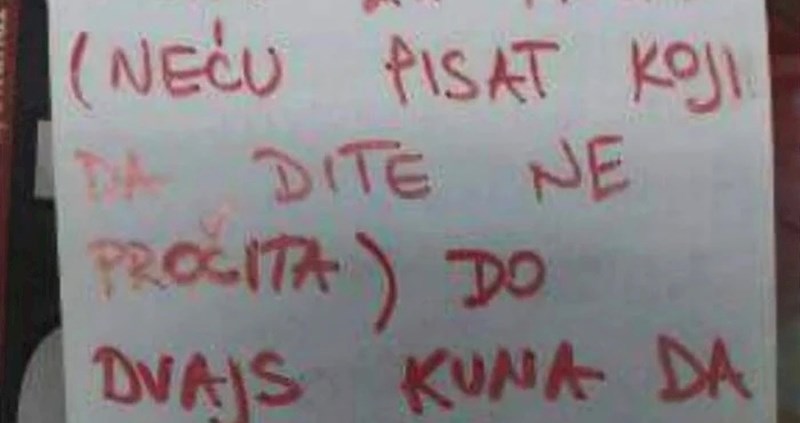 (NEĆU PISAT KOJI
DA DITE NE
PROČITA) DO
DVAJS KUNA DA